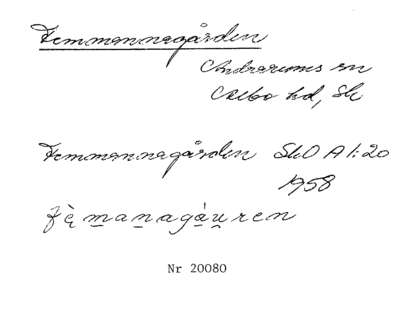 Femmannagården
Andrarums sn
Albo hd, Sk
Femmannagården SkO A 1:20
1958
fȩ̀managáuren
Nr 20080